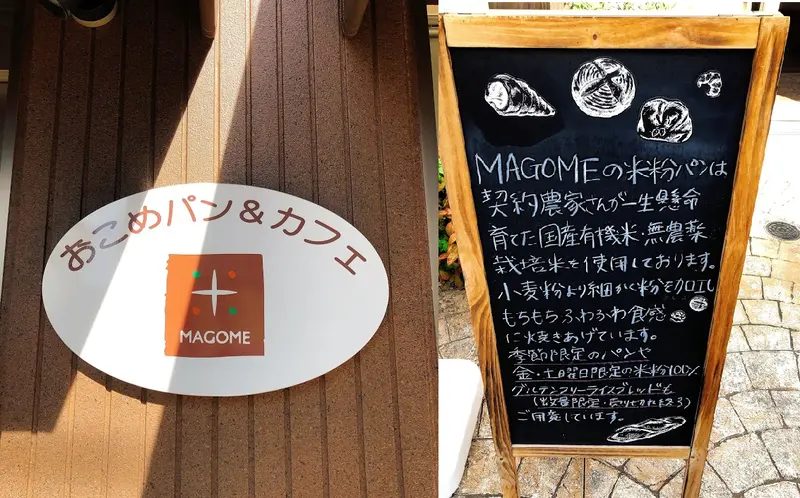 おこめパン&カフェ
MAGOME
MAGOMEの米粉パンは
契約農家さんが一生懸命
育てた国産有機米・無農薬
栽培米を使用しております。
小麦粉より細かく粉を加工し
もちもちふわふわ食感
に焼きあげています。
季節限定のパンや
金・土曜日限定の米粉100%
グルテンフリーライスブレッドも
(数量限定・売りきれ終了)
ご用意しています。